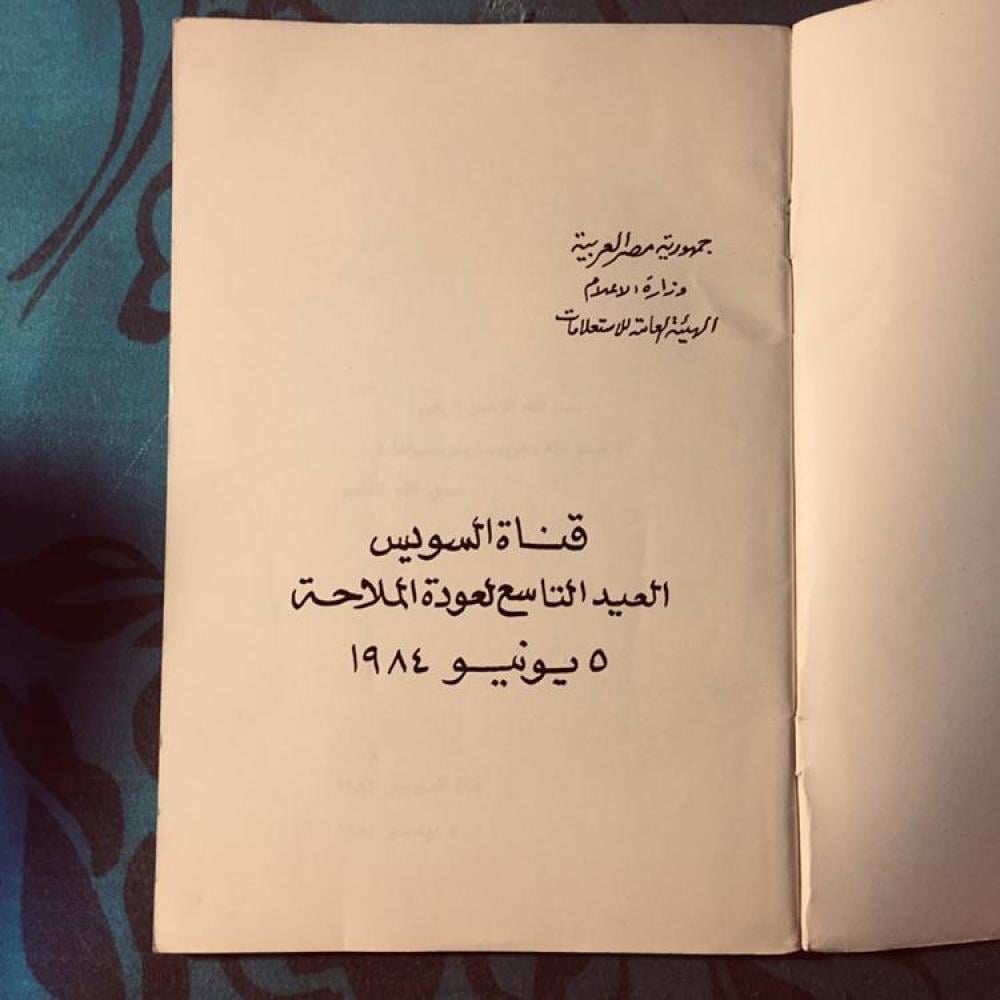 جمهورية مصر العربية
وزارة الاعلام
الهيئة العامة للاستعلامات
قناة السويس
العيد التاسع لعودة الملاحة
٥ يونيو ١٩٨٤